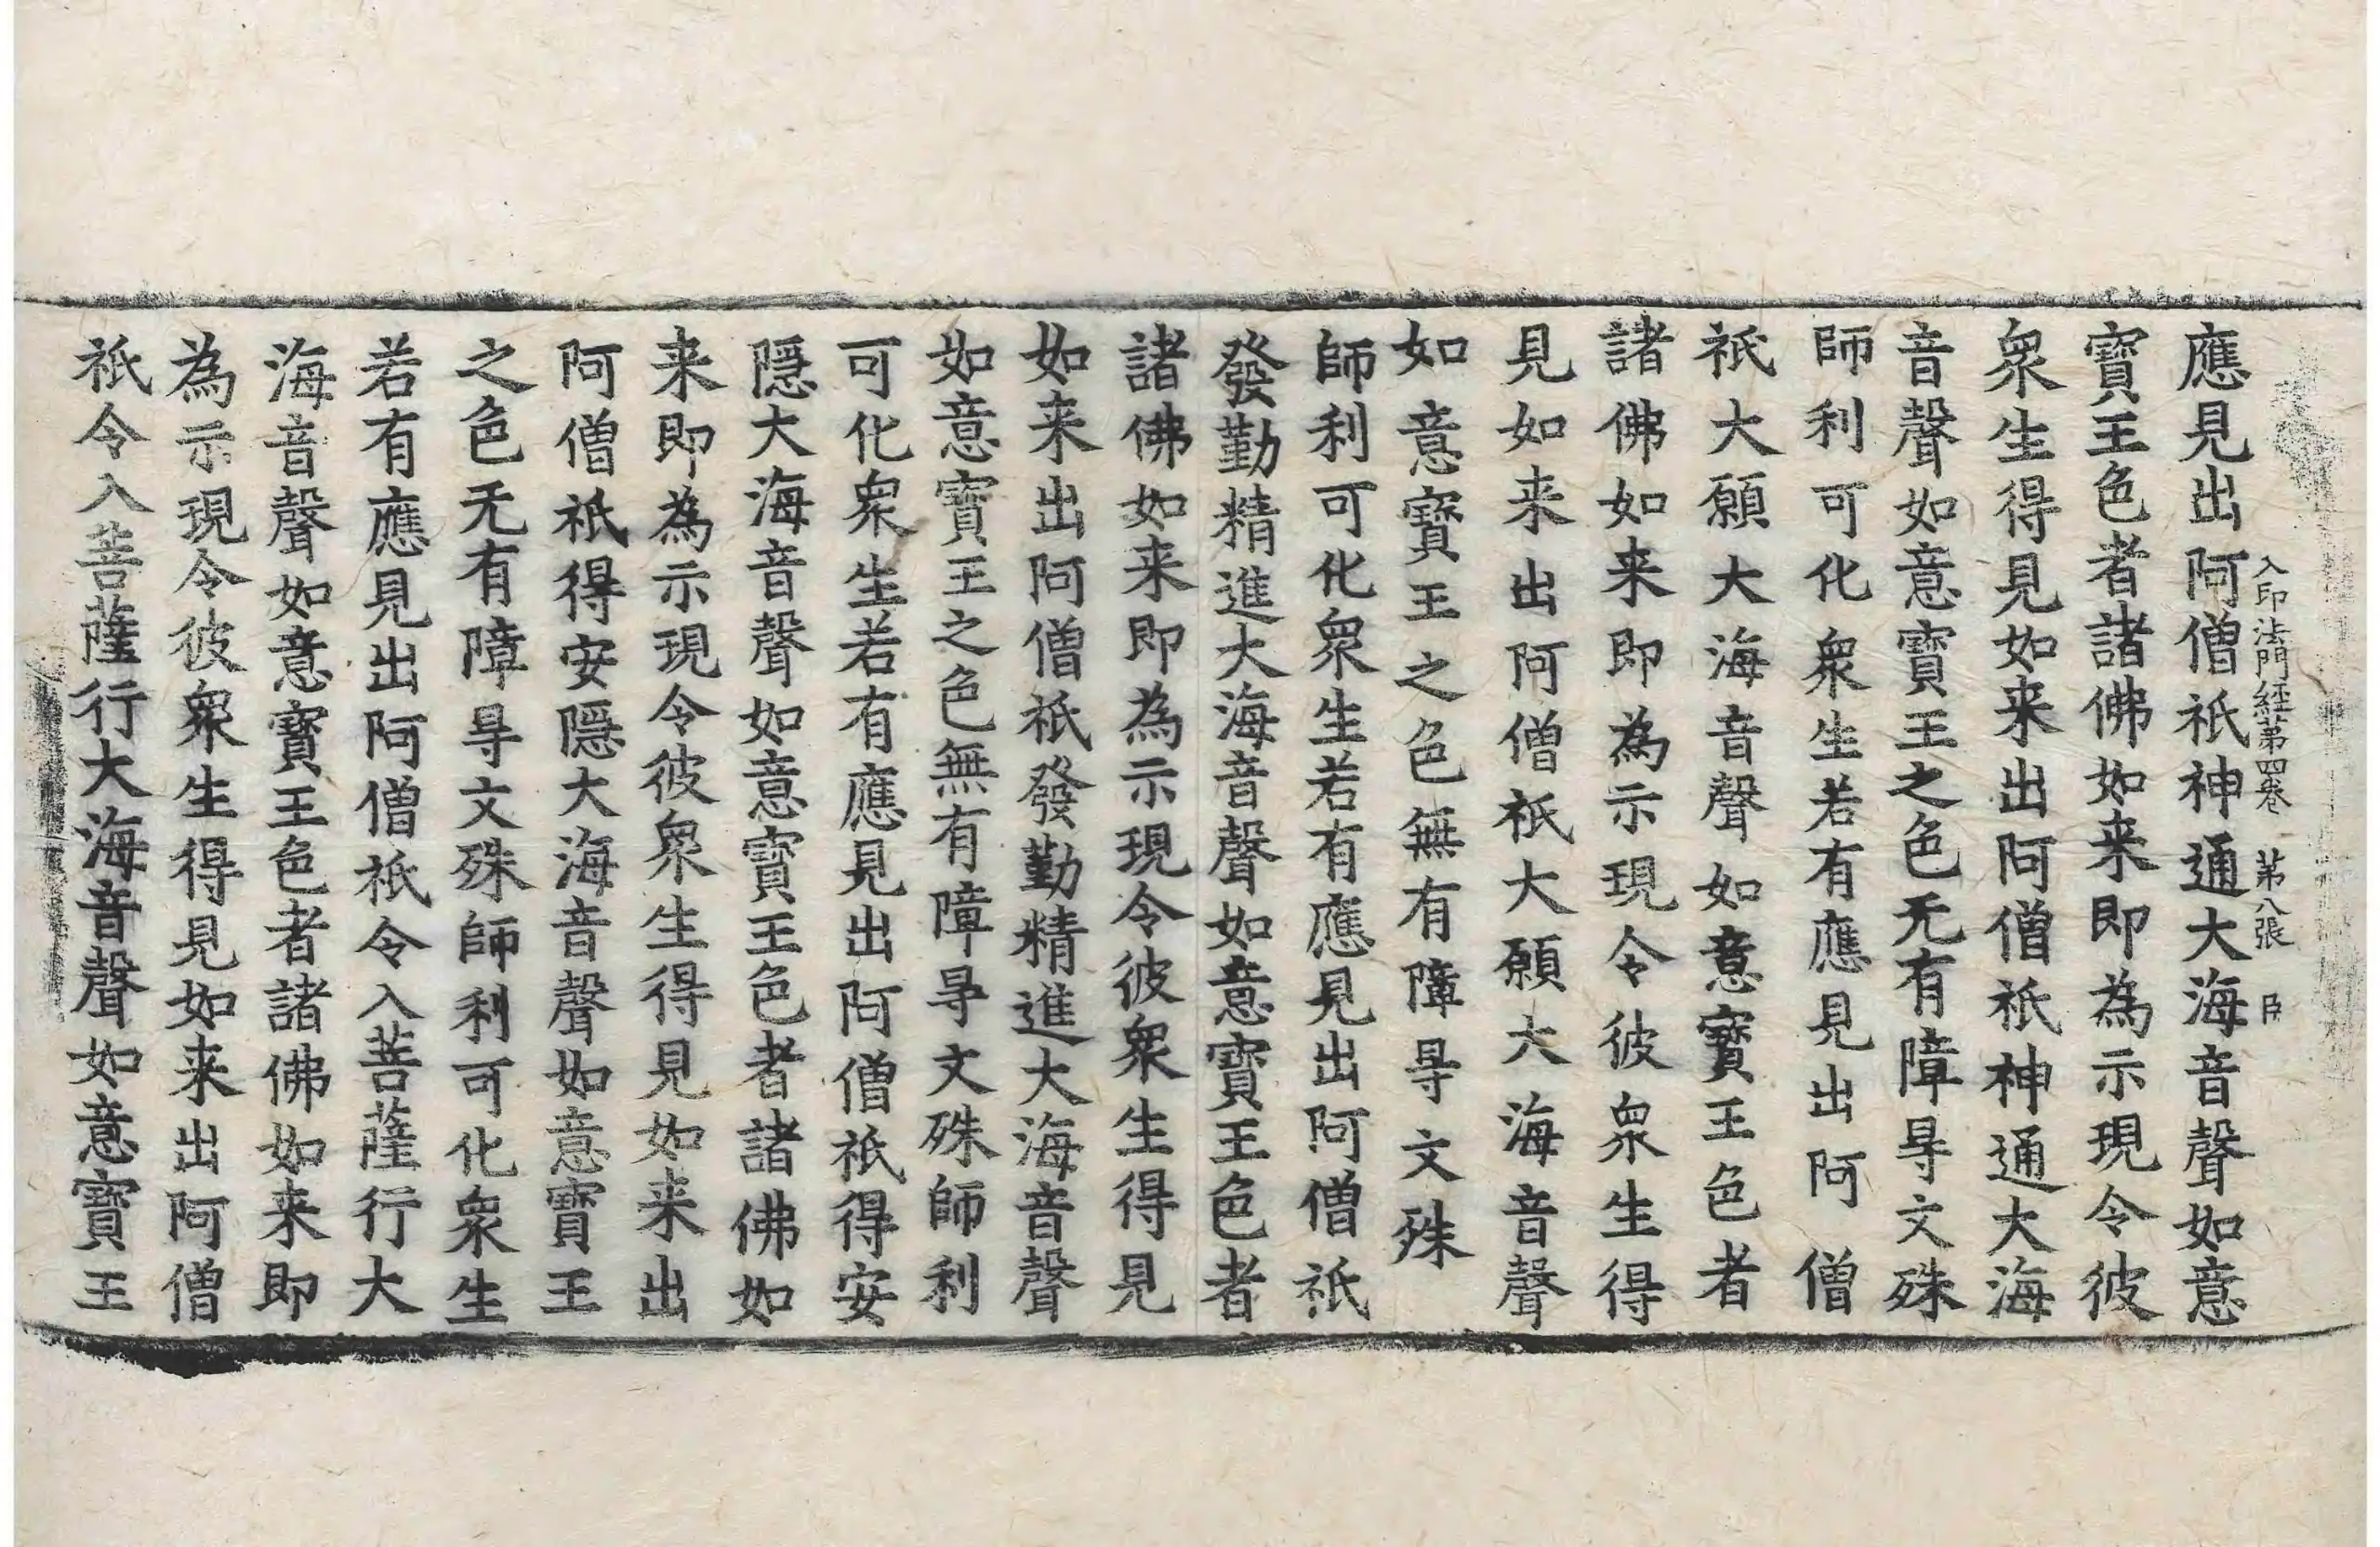 入印法門經第四卷 第八張 臣
應見出阿僧祇神通大海音聲如意
寶王色者諸佛如来即為示現令彼
衆生得見如来出阿僧祇神通大海
音聲如意寶王之色无有障㝵文殊
師利可化衆生若有應見出阿僧
祇大願大海音聲如意寶王色者
諸佛如来即為示現令彼衆生得
見如来出阿僧祇大願大海音聲
如意寶王之色無有障㝵文殊
師利可化衆生若有應見出阿僧祇
發勤精進大海音聲如意寶王色者
諸佛如来即為示現令彼衆生得見
如来出阿僧祇發勤精進大海音聲
如意寶王之色無有障㝵文殊師利
可化衆生若有應見出阿僧祇得安
隱大海音聲如意寶王色者諸佛如
来即為示現令彼衆生得見如来出
阿僧祇得安隱大海音聲如意寶王
之色无有障㝵文殊師利可化衆生
若有應見出阿僧祇令入菩薩行大
海音聲如意寶王色者諸佛如来即
為示現令彼衆生得見如来出阿僧
祇令入菩薩行大海音聲如意寶王